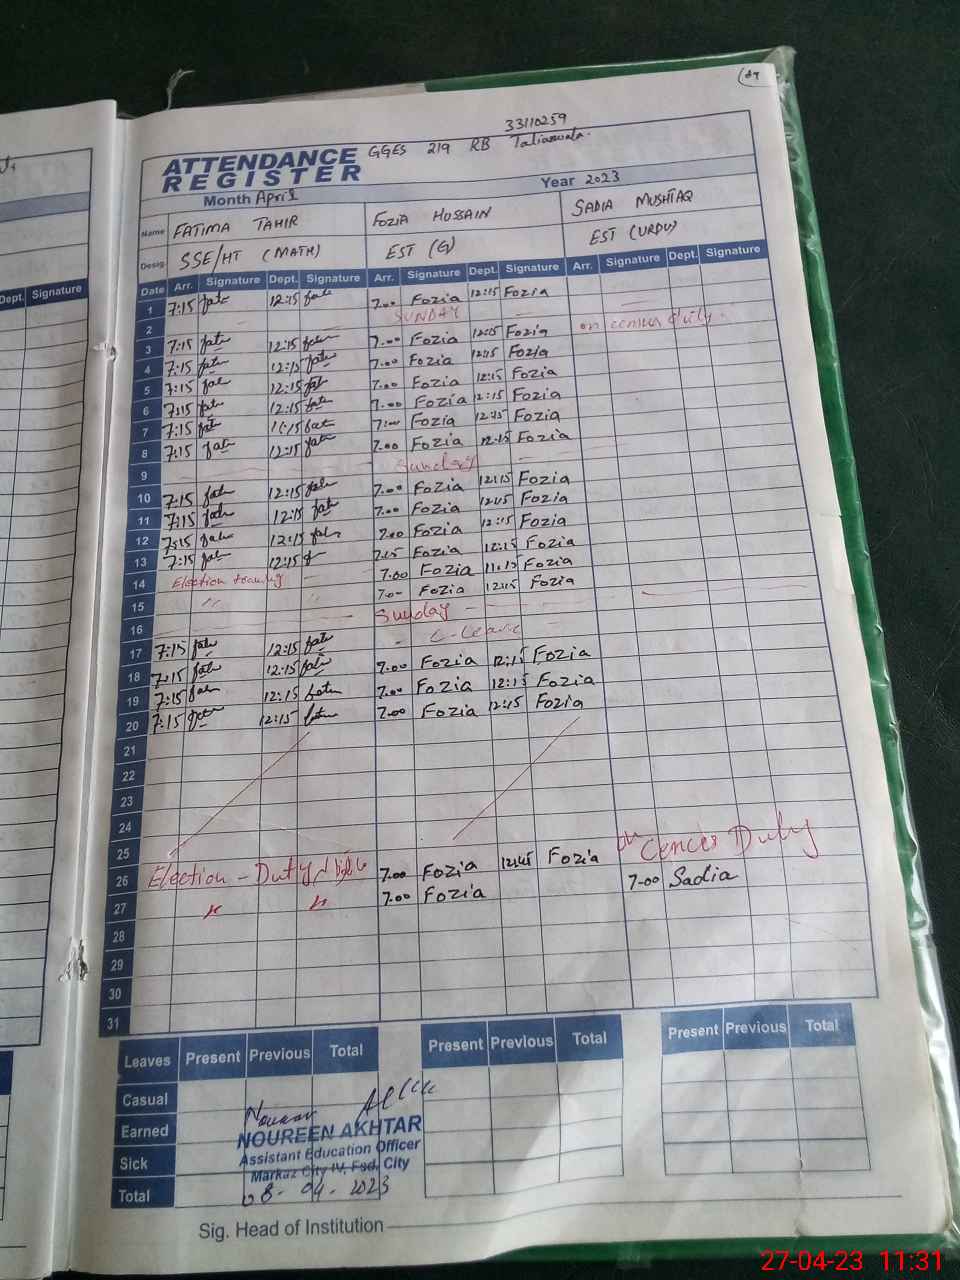 33110259
GGES 219 RB
ATTENDANCE
REGISTER
Month April Year 2023
Name FATIMA TAHIR FOZIA HUSSAIN SADIA MUSHTAQ
Desig. SSE/HT (MATH) EST (G) EST (URDU)
Date Arr. Signature Dept. Signature Arr. Signature Dept. Signature Arr. Signature Dept. Signature
Dept. Signature
1 7:15 12:15 7.00 Fozia 12:15 Fozia
2 SUNDAY
on census duty.
3 7:15 12:15 7.00 Fozia 12:15 Fozia
4 7:15 12:15 7.00 Fozia 12:15 Fozia
5 7:15 12:15 7.00 Fozia 12:15 Fozia
6 7:15 12:15 7.00 Fozia 12:15 Fozia
7 7:15 7:00 Fozia 12:15 Fozia
8 7:15 12:15 7.00 Fozia 12:15 Fozia
9 Sunday
10 7:15 12:15 7.00 Fozia 12:15 Fozia
11 7:15 12:15 7.00 Fozia 12:15 Fozia
12 7:15 12:15 7.00 Fozia 12:15 Fozia
13 7:15 12:15 Fozia 12:15 Fozia
14 Election 7.00 Fozia Fozia
15 〃 〃 7.00 Fozia 12:15 Fozia
16 Sunday
17 7:15 12:15 C-Leave
18 7:15 12:15 7.00 Fozia 12:15 Fozia
19 7:15 12:15 7.00 Fozia 12:15 Fozia
20 7:15 12:15 7.00 Fozia 12:15 Fozia
21
22
23
24
25
26 Election - Duty 7.00 Fozia 12:15 Fozia on Cences Duty
27 〃 〃 7.00 Fozia 7-00 Sadia
28
29
30
31
Leaves Present Previous Total Present Previous Total Present Previous Total
Casual
Earned
Sick
Total
Noureen
NOUREEN AKHTAR
Assistant Education Officer
Markaz City IV, Fsd. City
08-04-2023
Sig. Head of Institution
27-04-23 11:31